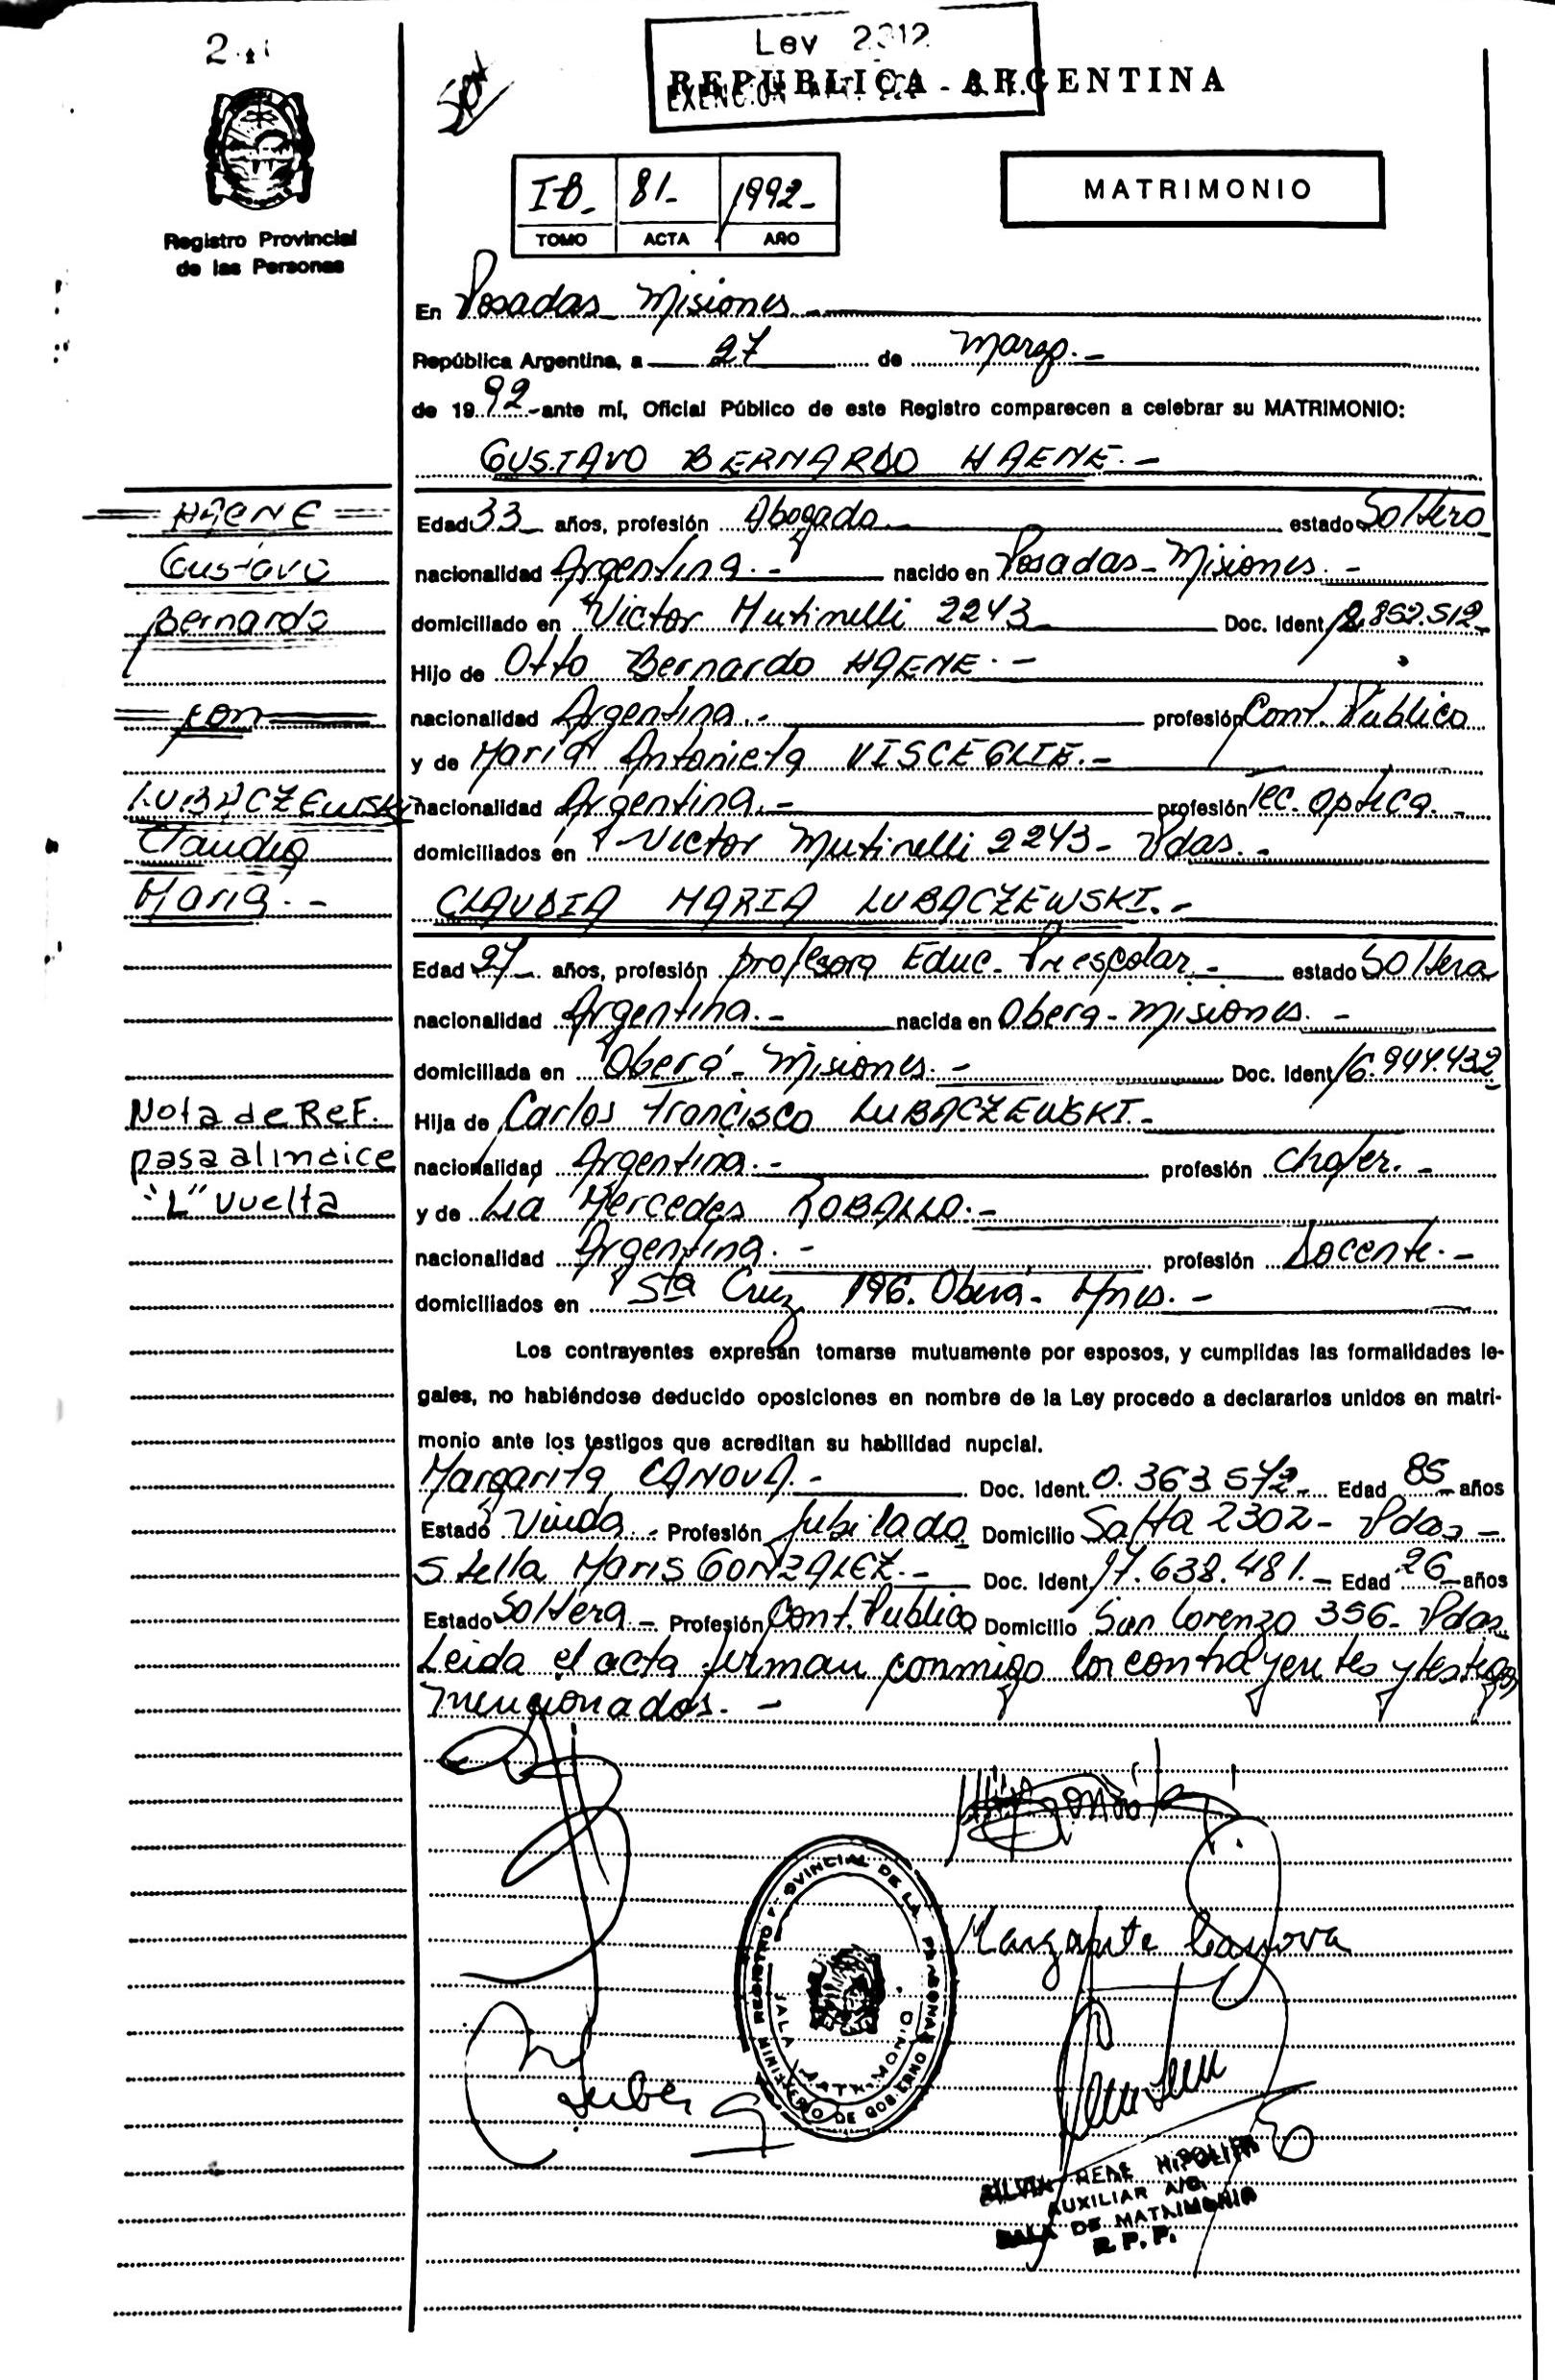 Ley 2312
REPUBLICA ARGENTINA
EXENCION
Registro Provincial
de las Personas
IB- 81- 1992-
TOMO ACTA AÑO
MATRIMONIO
En Posadas Misiones
República Argentina, a 27 de marzo.-
de 1992-ante mí, Oficial Público de este Registro comparecen a celebrar su MATRIMONIO:
GUSTAVO BERNARDO HAENE.-
Edad 33 años, profesión Abogado estado Soltero
nacionalidad Argentina.- nacido en Posadas-Misiones.-
domiciliado en Victor Mutinelli 2243 Doc. Ident 12.852.512-
Hijo de Otto Bernardo HAENE.-
nacionalidad Argentina.- profesión Cont. Público
y de María Antonieta VISCEGLIE.-
nacionalidad Argentina.- profesión Tec. Optica.-
domiciliados en Victor Mutinelli 2243- Pdas.-
CLAUDIA MARIA LUBACZEWSKI.-
Edad 27 años, profesión profesora Educ. Preescolar.- estado Soltera
nacionalidad Argentina.- nacida en Oberá-Misiones.-
domiciliada en Oberá-Misiones.- Doc. Ident 16.944.432
Hija de Carlos Francisco LUBACZEWSKI.-
nacionalidad Argentina.- profesión Chofer.-
y de Lia Mercedes ROBALLO.-
nacionalidad Argentina.- profesión Docente.-
domiciliados en Sta Cruz 196. Oberá- Mnes.-
Los contrayentes expresan tomarse mutuamente por esposos, y cumplidas las formalidades le-
gales, no habiéndose deducido oposiciones en nombre de la Ley procedo a declararlos unidos en matri-
monio ante los testigos que acreditan su habilidad nupcial.
Margarita CANOVA.- Doc. Ident. 0.363.572- Edad 85 años
Estado Viuda.- Profesión Jubilada Domicilio Salta 2302- Pdas-
Stella Maris GONZALEZ.- Doc. Ident 17.638.481.- Edad 26 años
Estado Soltera.- Profesión Cont. Publico Domicilio San Lorenzo 356- Pdas
Leida el acta firman conmigo los contrayentes y testigos
mencionados.-
HAENE
Gustavo
Bernardo
con
LUBACZEWSKI
Claudia
Maria.-
Nota de Ref.
pasa al indice
"L" vuelta
Margarita Canova
REGISTRO PROVINCIAL DE LAS PERSONAS
MINISTERIO DE GOBIERNO
SALA MATRIMONIO
SILVIA RENE HIPOLITO
AUXILIAR A/C.
SALA DE MATRIMONIO
R. P. P.